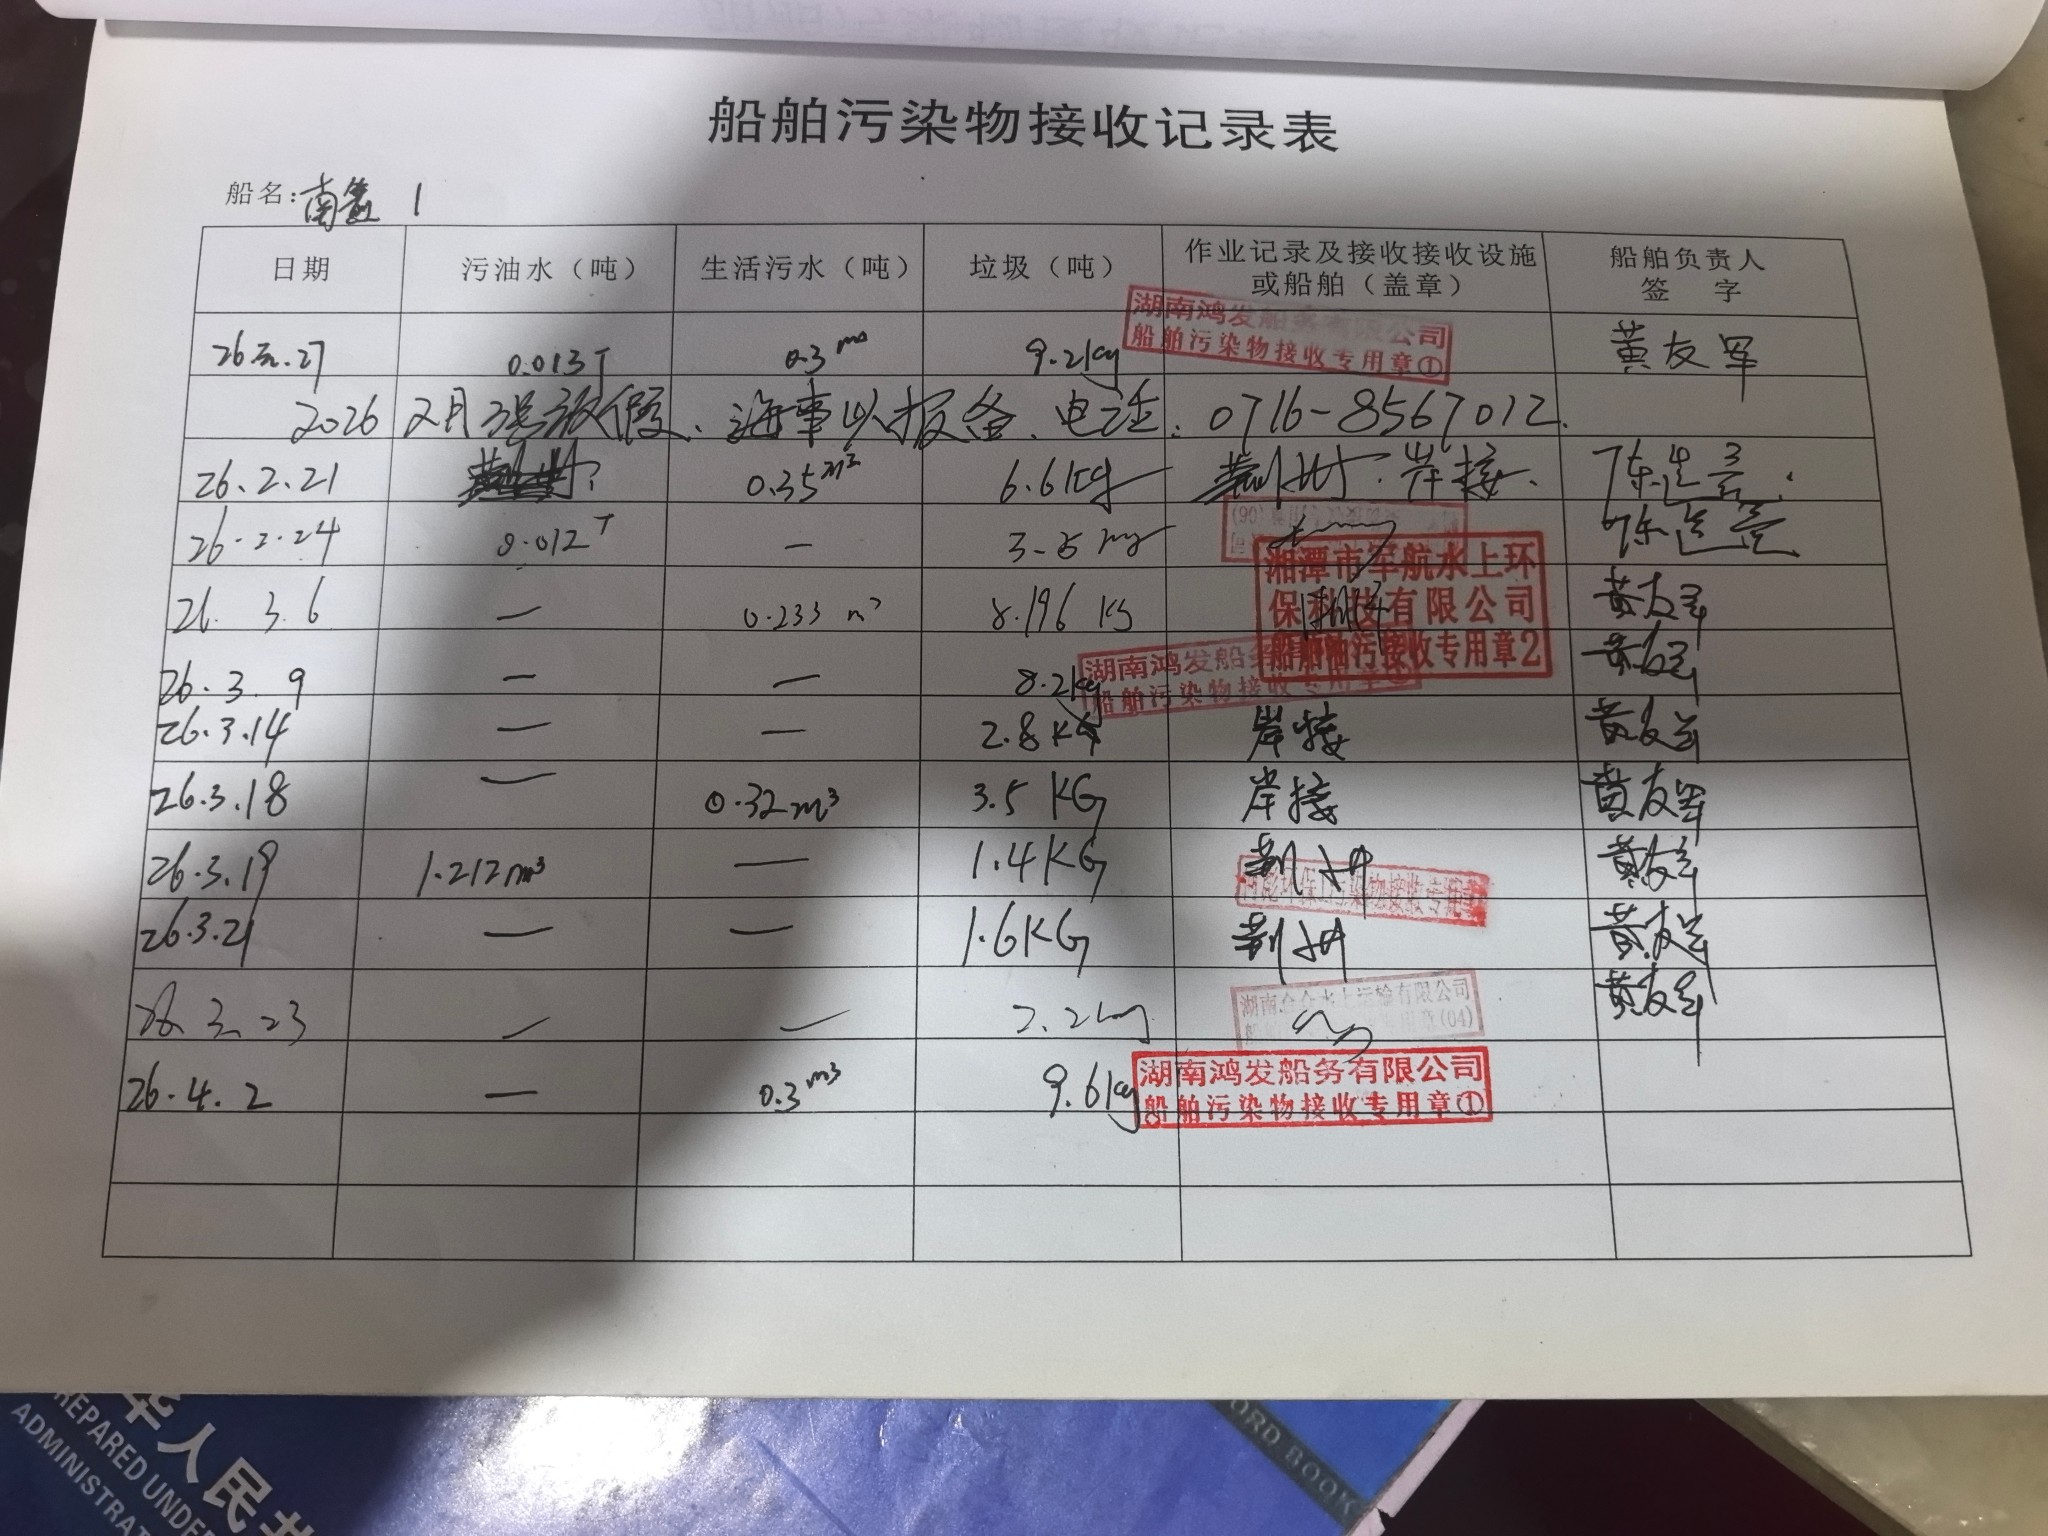 船舶污染物接收记录表
船名: 南 1
日期 污油水（吨） 生活污水（吨） 垃圾（吨） 作业记录及接收接收设施或船舶（盖章） 船舶负责人签 字
26. .27 0.013T 0.3 9.2kg 湖南鸿发船务有限公司 船舶污染物接收专用章① 黄友军
2026 2月 放假、海事以报备、电话：0716-8567012.
26.2.21 0.35m3 6.6Kg 荆州·岸接、
26.2.24 0.012T —
26. 3.6 — 0.233 m3 8.196 KG 湘潭市军航水上环保科技有限公司 船舶油污接收专用章2 黄友军
26.3.9 — — 8.2kg 湖南鸿发船务 船舶污染物接收专用章① 黄友军
26.3.14 — — 2.8KG 岸接 黄友军
26.3.18 — 0.32m3 3.5KG 岸接 黄友军
26.3.19 1.212m3 — 1.4KG 荆州 环保 污染物接收专用章 黄友军
26.3.21 — — 1.6KG 荆州 黄友军
26.3.23 2.2kg 湖南 水上运输有限公司 专用章(04) 黄友军
26.4.2 — 0.3m3 9.6kg 湖南鸿发船务有限公司 船舶污染物接收专用章①
华人民共
REPARED UNDER
ADMINISTRAT
ORD BOOK